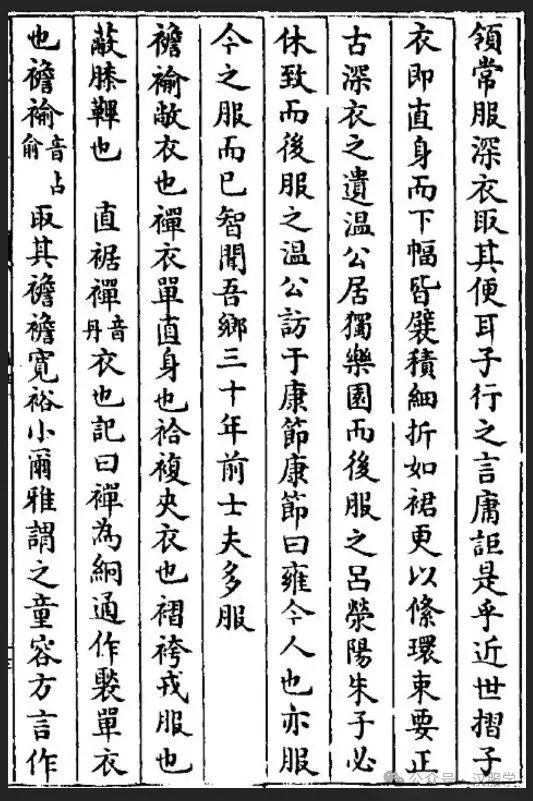 領常服深衣取其便耳子行之言庸詎是乎近世摺子
衣即直身而下幅皆襞積細折如裙更以絛環束要正
古深衣之遺温公居獨樂園而後服之呂滎陽朱子必
休致而後服之温公訪于康節康節曰雍今人也亦服
今之服而已智聞吾鄉三十年前士夫多服
襜褕敞衣也襌衣單直身也袷複夾衣也褶袴戎服也
蔽膝鞸也 直裾襌音丹衣也記曰襌為絅通作褧單衣
也襜褕音占俞 取其襜襜寬裕小爾雅謂之童容方言作
公众号 · 汉服学